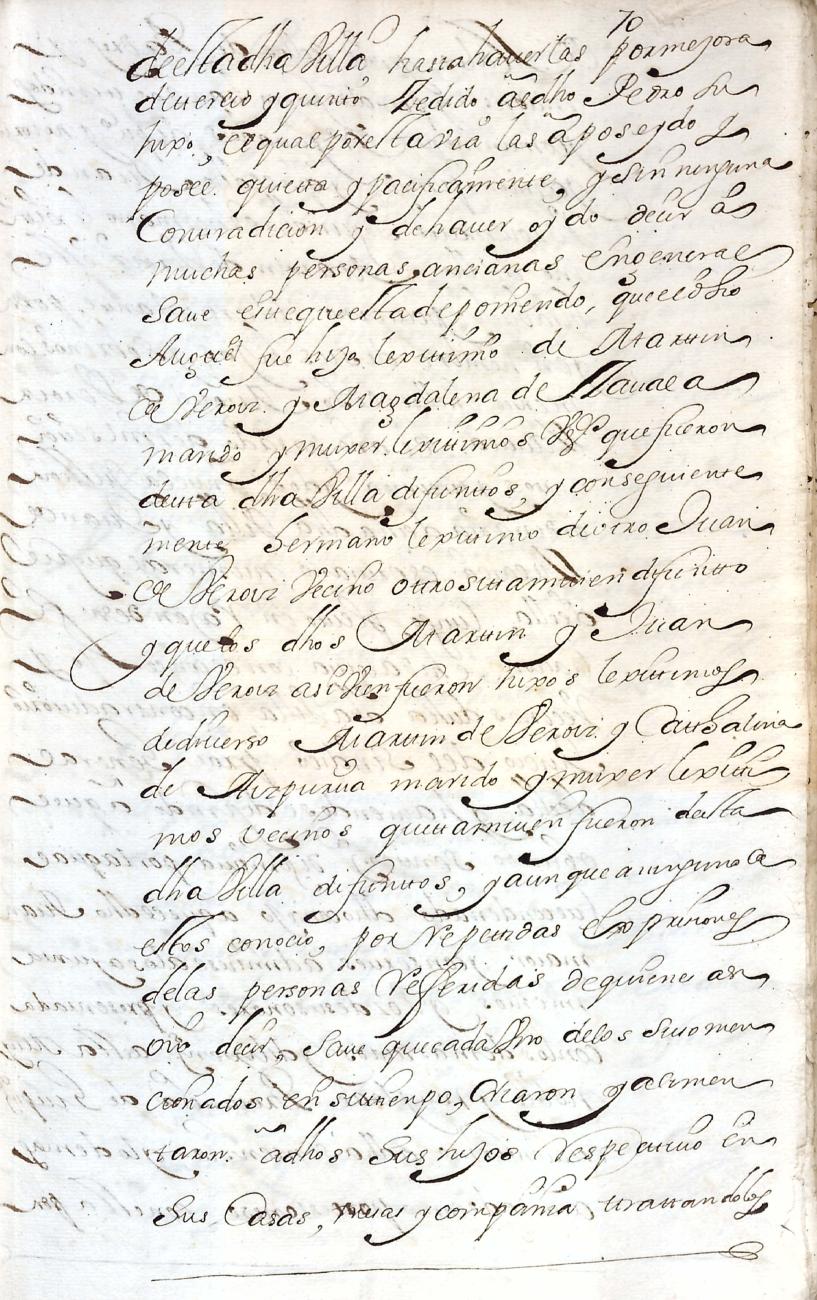 70
de esta dha Villa hasta haverlas por mejora
de tercio y quinto Zedido a el dho Pedro su
hixo, el qual por esta via las a poseydo y
posee quieta y pacificamente, y sin ninguna
Contradicion y de haver oydo decir a
muchas personas ancianas en general
Save este que esta deponiendo, que el dho
Miguel fue hijo lexitimo de Martin
de Veroiz y Magdalena de Zavala
marido y muxer lexitimos Vs que fueron
de esta dha Villa difuntos, y consiguiente
mente hermano lexitimo de otro Juan
de Veroiz Vecino ottrosi tamvien difunto
y que los dhos Martin y Juan
de Veroiz asi vien fueron hixos lexitimos
de diverso Martin de Veroiz y Cathalina
de Aizpurua marido y muxer lexiti
mos vecinos que tamvien fueron desta
dha Villa difuntos, y aunque a ninguno de
estos conocio, por repetidas expresiones
de las personas referidas de quienes as
oio decir, save que cada Uno de los suso men
cionados en su tiempo, Criaron y alimen
taron a dhos sus hijos respectivo en
Sus Casas, mesas y compañia tratandoles